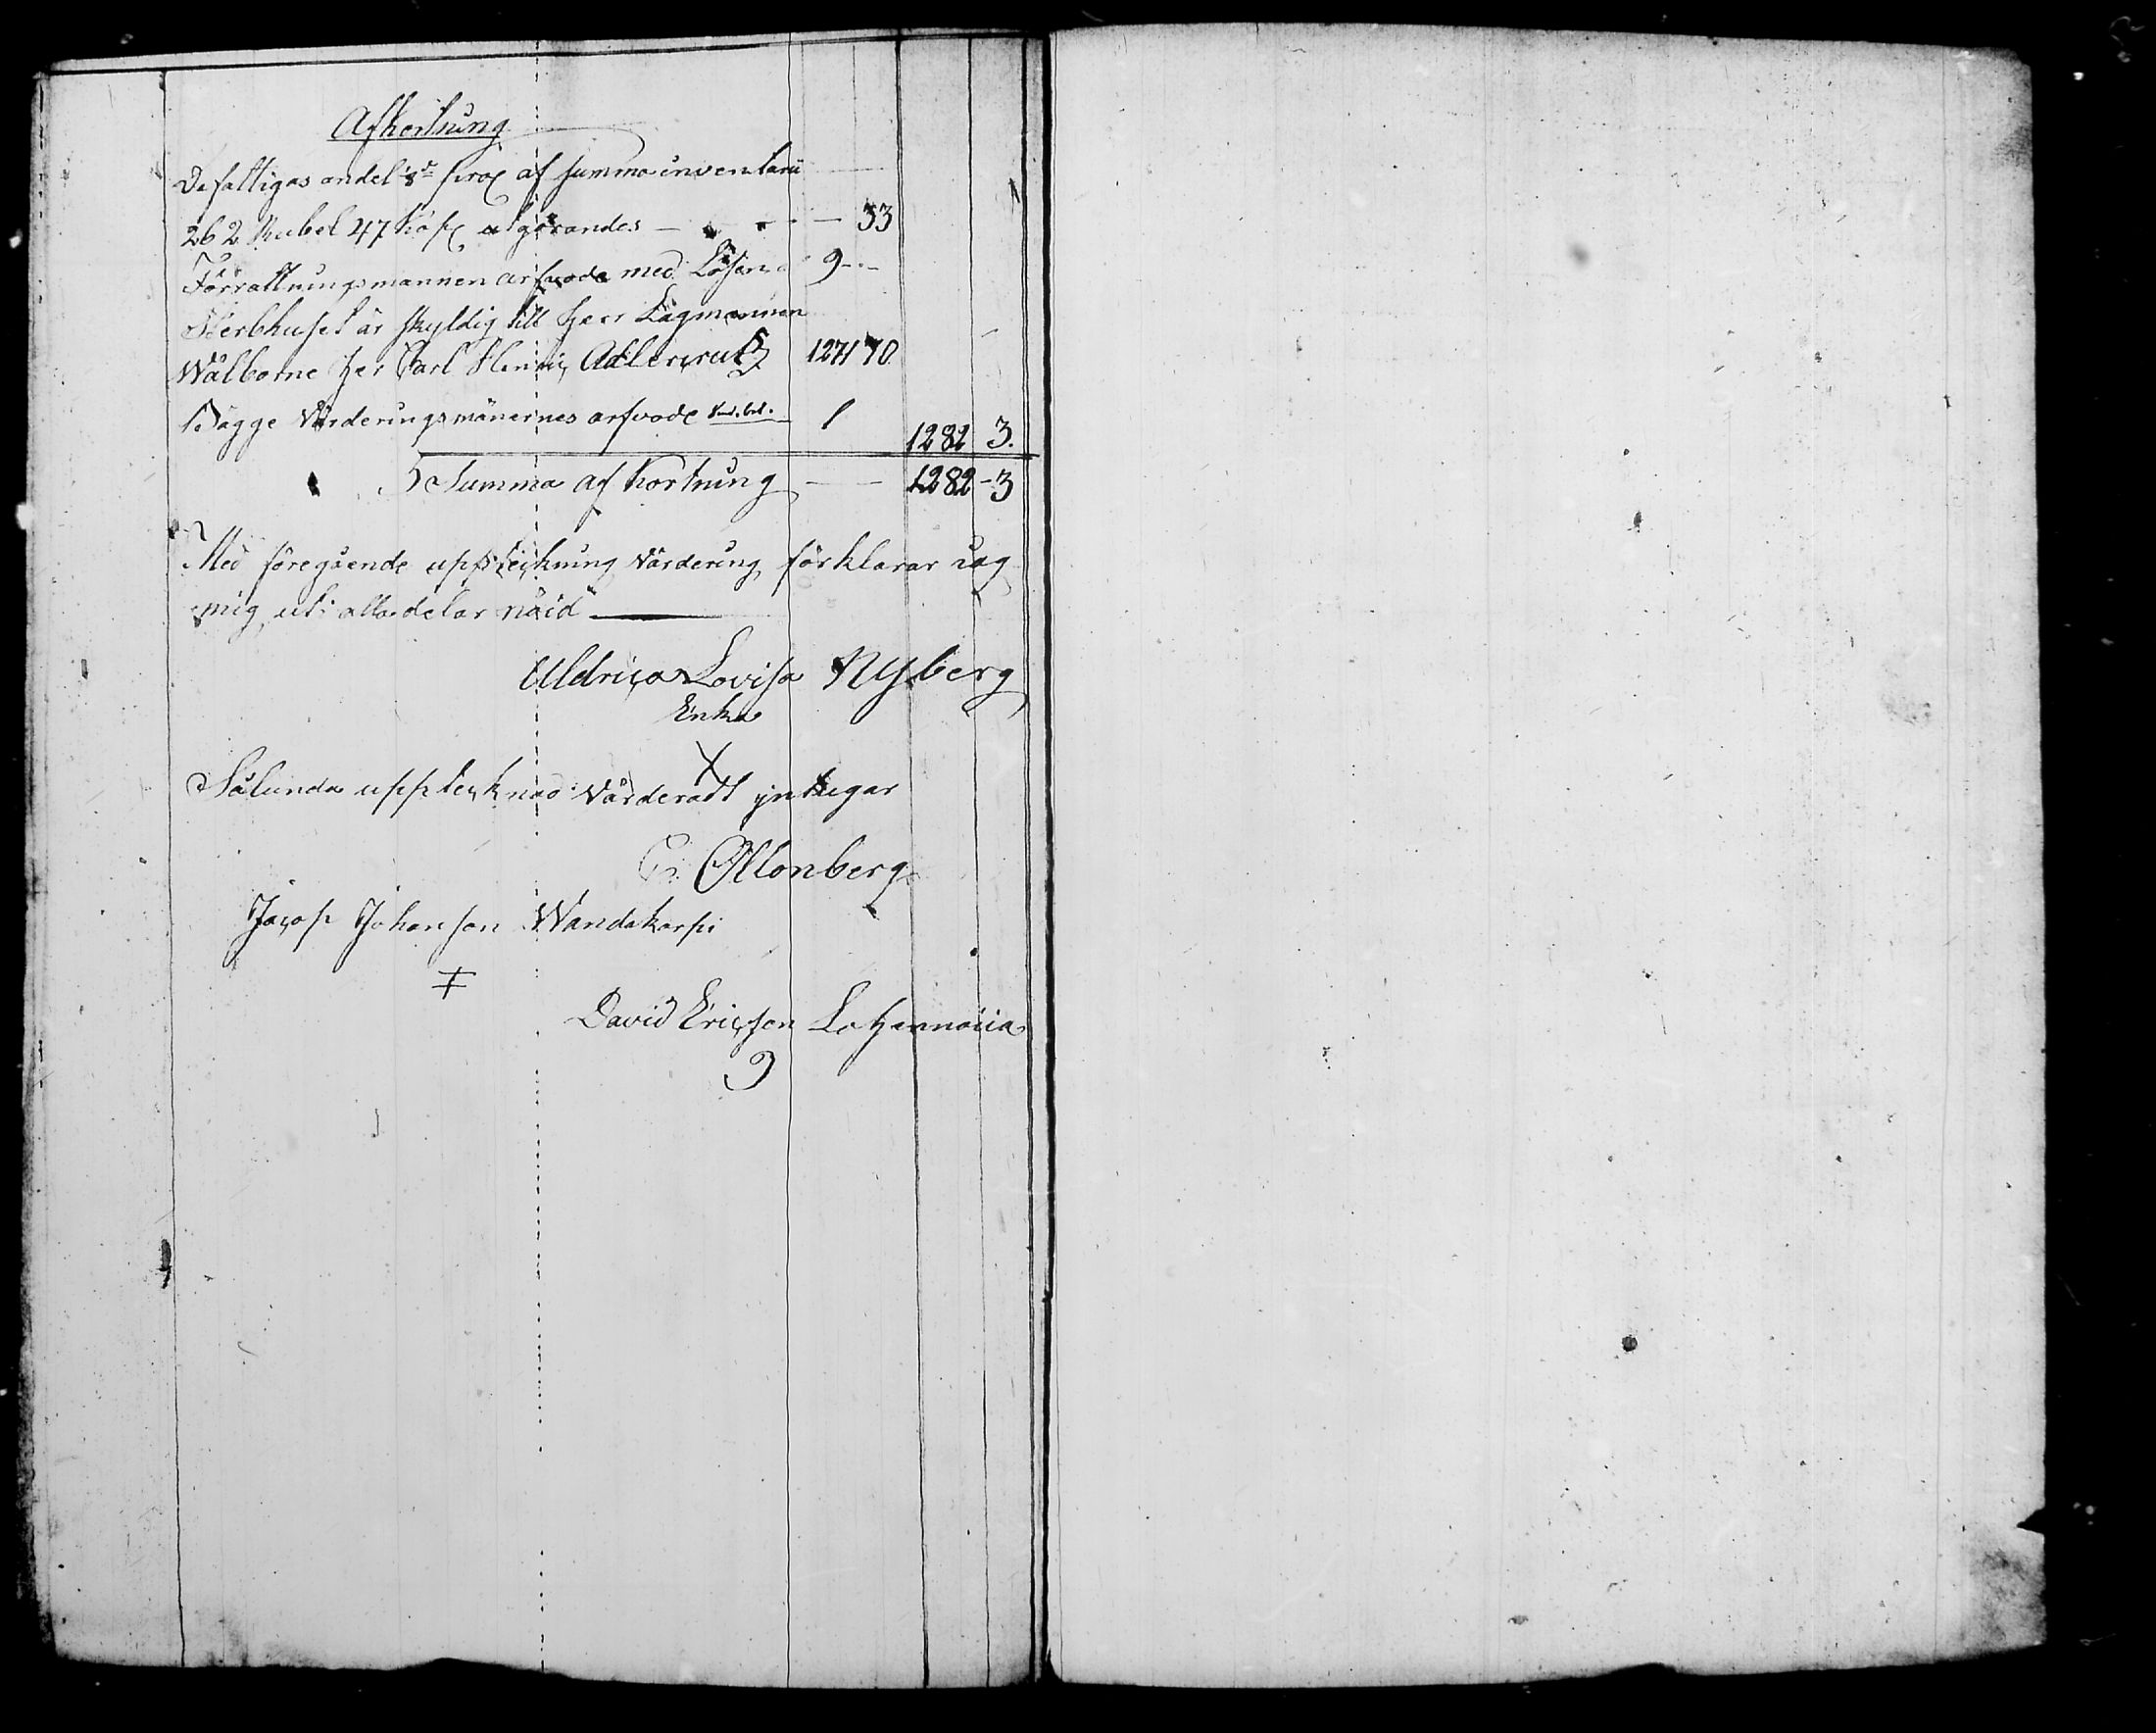 Afkortning
De fattigas andel 1/8 de proc af summa inventarii
262 Rubel 47 kop utgörandes — — — 33
Förrättningsmannen arfvode med Lösen 9 - -
Sterbhuset är skyldig till Herr Lagmannen
Wälborne Her Carl Henric Adlercrutz 1271 70
Bägge Värderingsmännernes arfvode 1 1282 3.
Summa af kortning — — 1282 - 3
Med föregående uppteckning Värdering förklarar jag
mig uti alla delar nöid
Uldrica Lovisa Nyberg
Enka
X
Sålunda upptecknad Värderadt intygar
Ollonberg
Jacop Johanson Wandakorpi
David Ericson
9